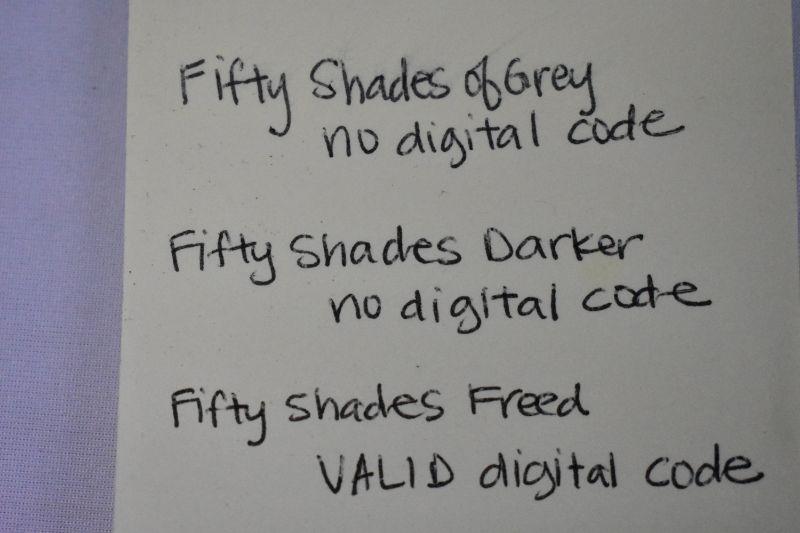 Fifty Shades of Grey
no digital code
Fifty Shades Darker
no digital code
Fifty Shades Freed
VALID digital code